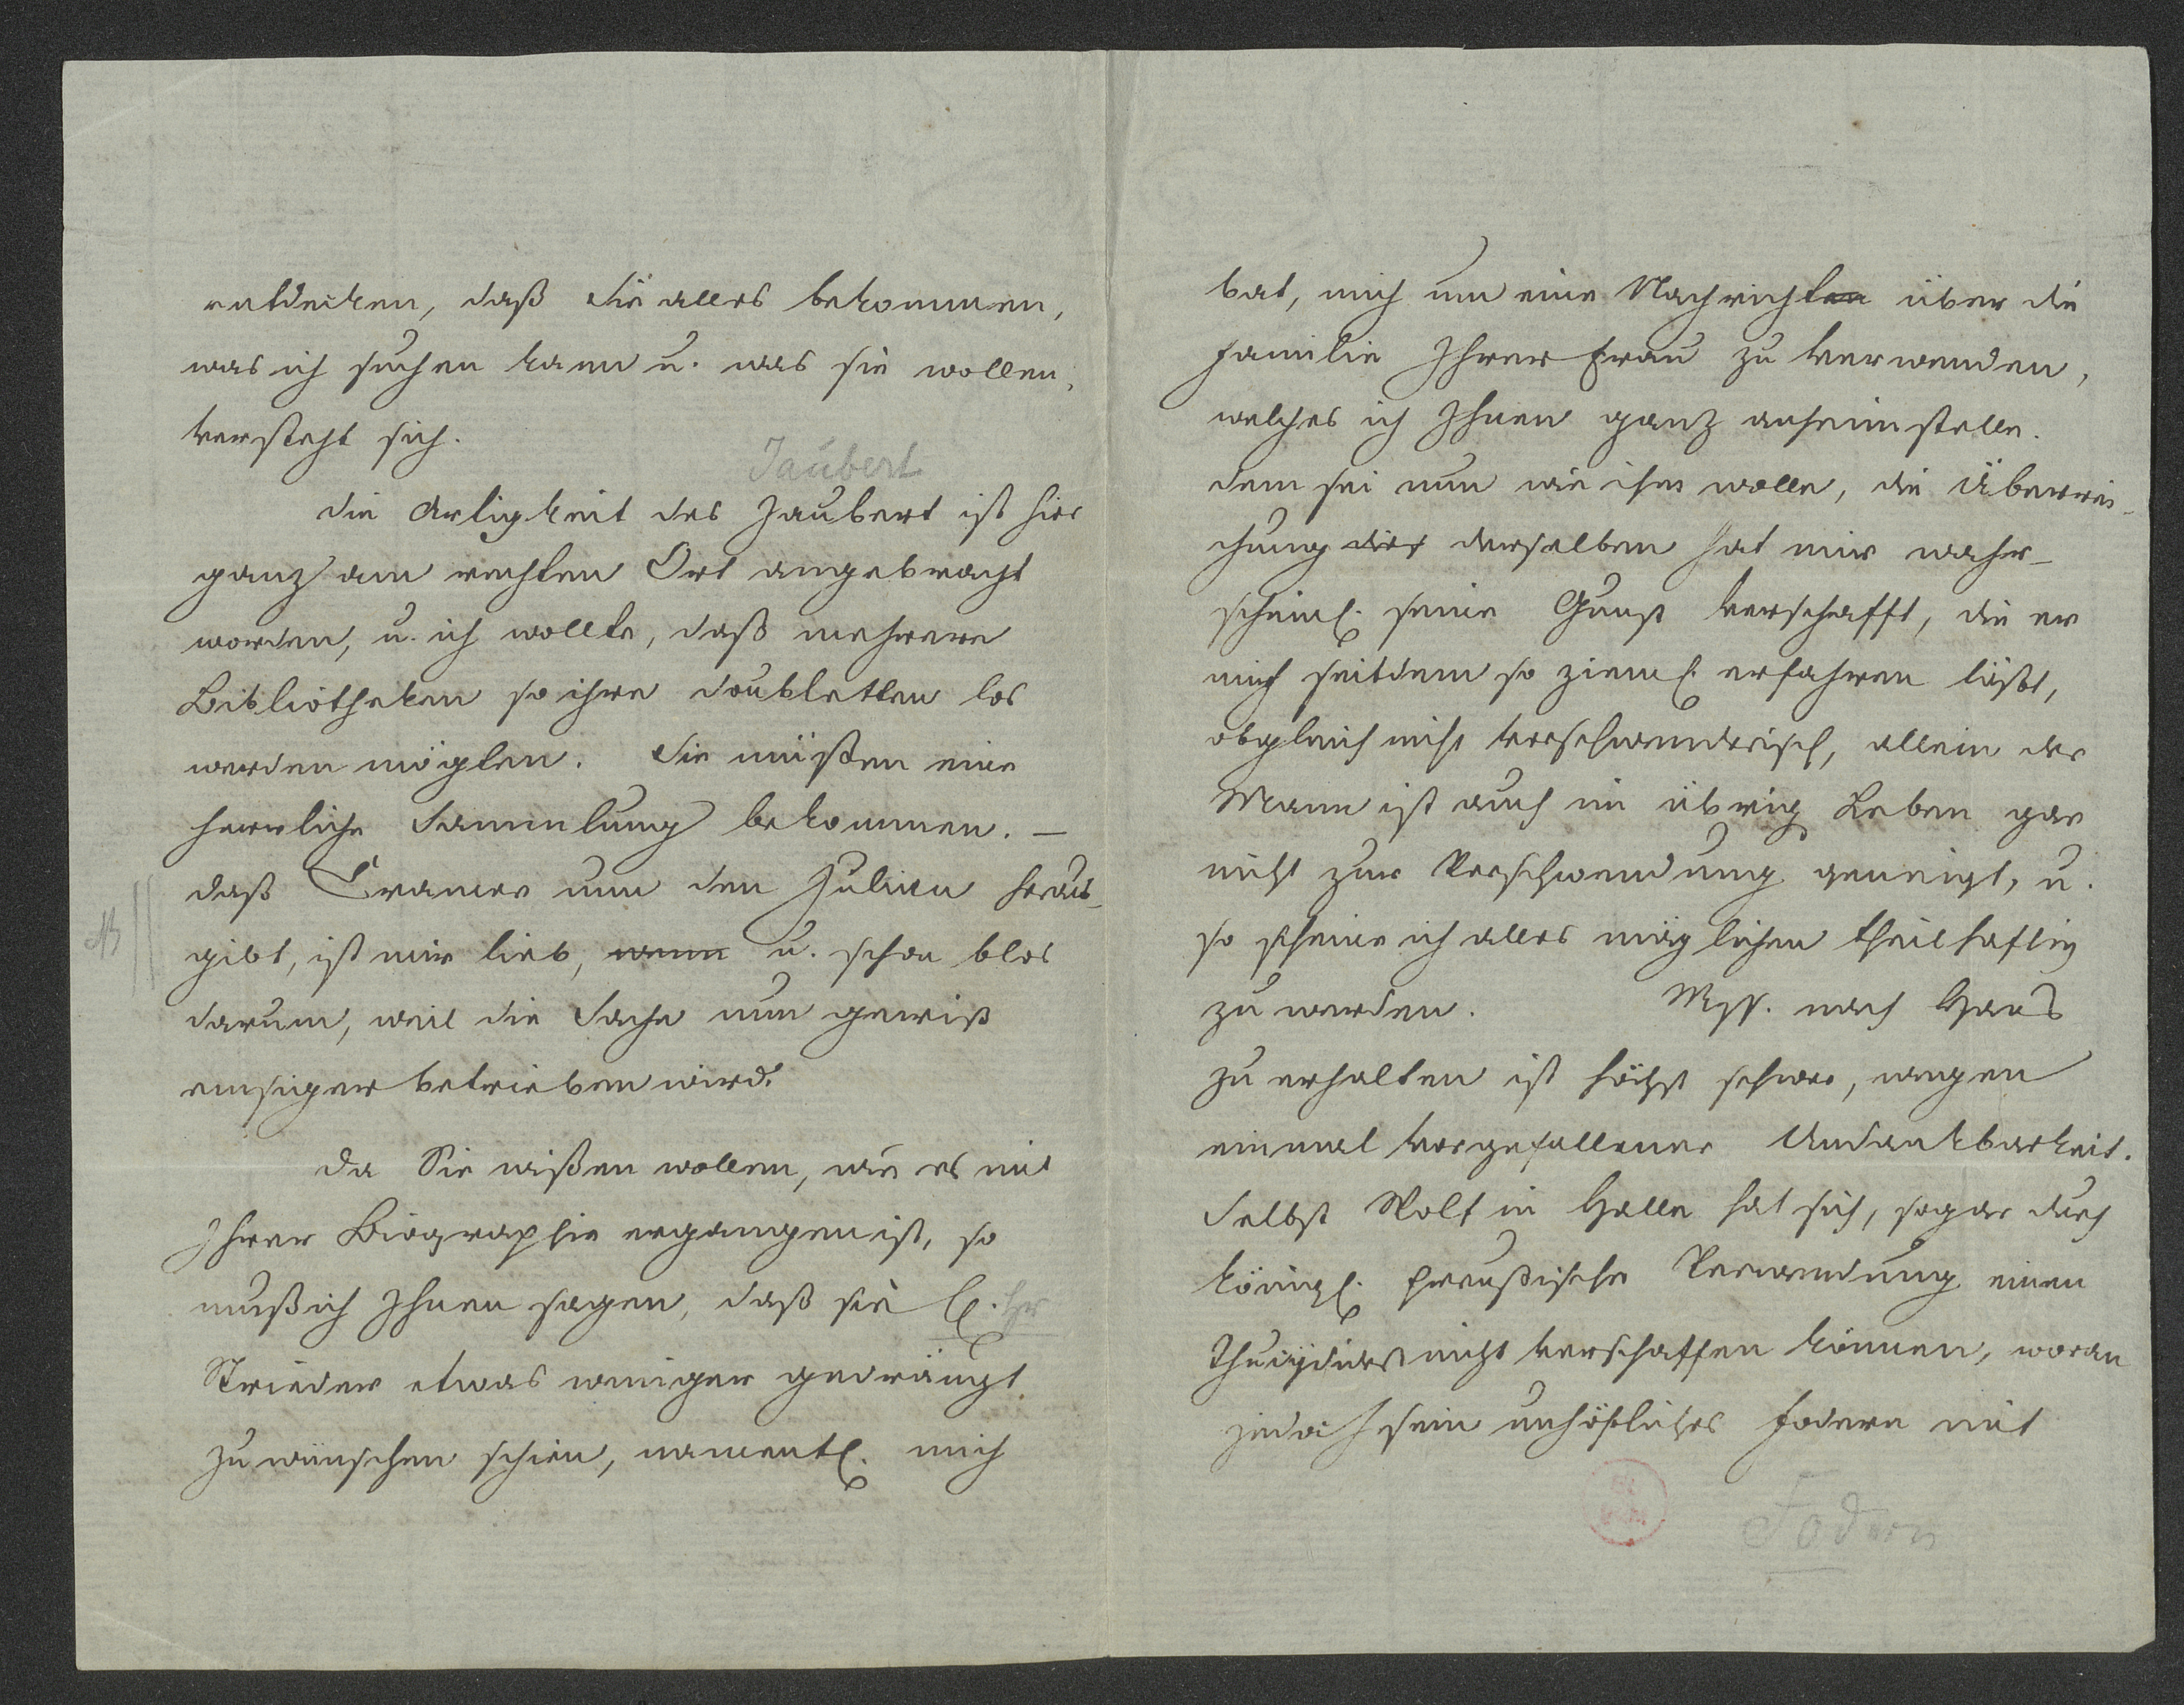 entdecken, daß Sie alles bekommen,
was ich suchen kann u. was sie wollen,
versteht sich.
Jaubert
Die Artigkeit des Jaubert ist hier
ganz am rechten Ort angebracht
worden, u. ich wollte, daß mehrere
Bibliotheken so ihre Doubletten los
werden mögten. Sie müßten eine
herrliche Sammlung bekommen. —
Daß Cramer nun den Julian heraus-
gibt, ist mir lieb, wenn u. schon blos
darum, weil die Sache nun gewiß
emsiger betrieben wird.
Da Sie wißen wollen, wie es mit
Ihrer Biographie ergangen ist, so
muß ich Ihnen sagen, daß sie H. Hr
Strieder etwas weniger gedrängt
zu wünschen schien, namentl. mich
bat, mich um eine Nachrichten über die
Familie Ihrer Frau zu verwenden,
welches ich Ihnen ganz anheimstelle.
Dem sei nun wie ihm wolle, die Überrei-
chung der derselben hat mir wahr-
scheinl. seine Gunst verschafft, die er
mich seitdem so zieml. erfahren läßt,
obgleich nicht verschwenderisch, allein der
Mann ist auch im übrig. Leben gar
nicht zur Verschwendung geneigt, u.
so scheine ich alles möglichen theilhaftig
zu werden. Mss. nach Haus
zu erhalten ist höchst schwer, wegen
einmal vorgefallener Undankbarkeit.
Selbst Wolf in Halle hat sich, sogar durch
königl. Preußische Verwendung einen
Thucydides nicht verschaffen können, woran
jedoch sein unhöfliches Fodern mit
Fodern